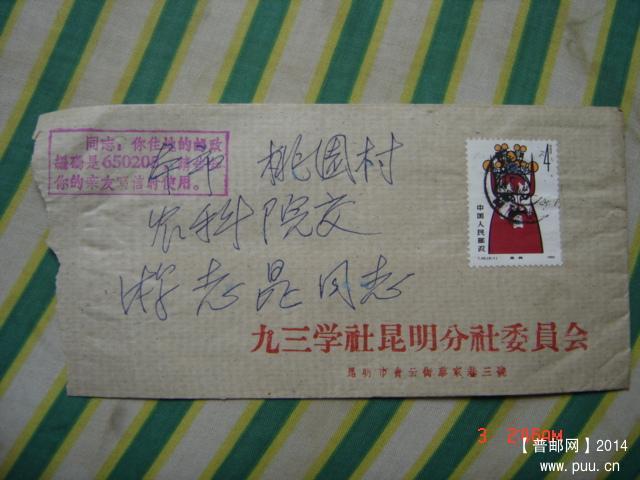 同志：你住地的邮政
编码是650203
你的亲友写信时使用。
本市 桃園村
农科院交
游志昆同志
4
中国人民邮政
九三学社昆明分社委員会
昆明市青云街 三號
3 2:
【普邮网】2014
www.puu.cn